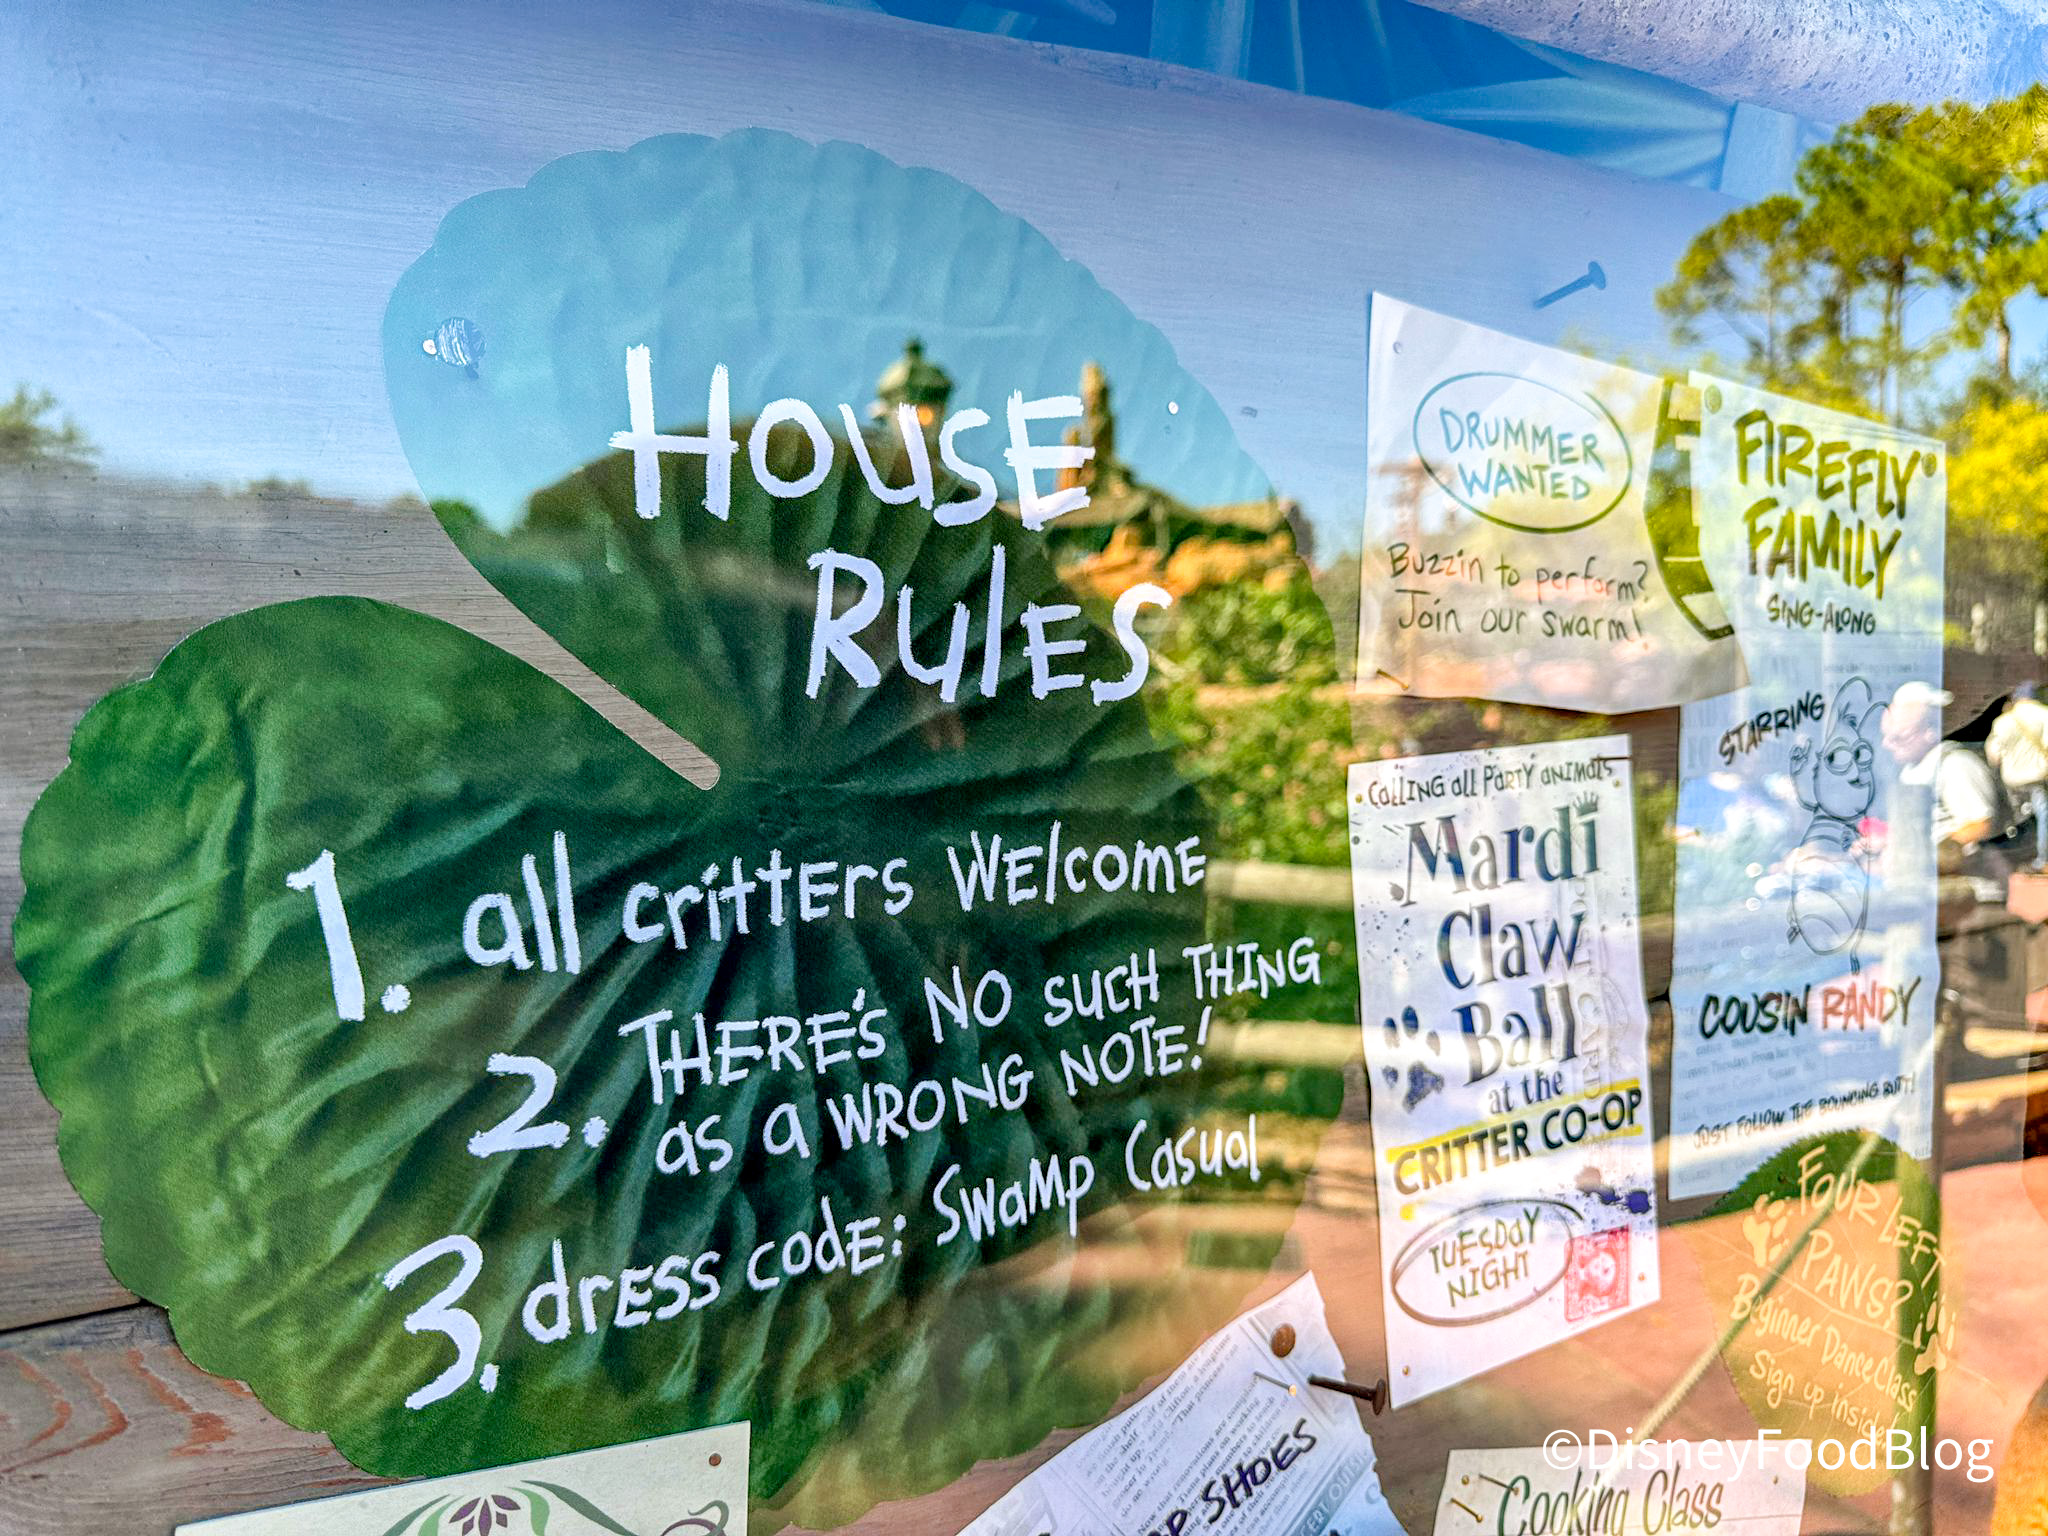 HOUSE
RULES
1. all critters WElcome
2. THERE'S NO SUCH THING
as a WRONG NOTE!
3. dress code: Swamp Casual
DRUMMER
WANTED
Buzzin to perform?
Join our swarm!
FIREFLY
FAMILY
SING-ALONG
STARRING
COUSIN RANDY
JUST FOLLOW THE BOUNCING BUTT!
Calling all Party animals
Mardi
Claw
Ball
at the
CRITTER CO-OP
TUESDAY
NIGHT
FOUR LEFT
PAWS?
Beginner Dance Class
Sign up inside!
SHOES
Cooking Class
©DisneyFoodBlog